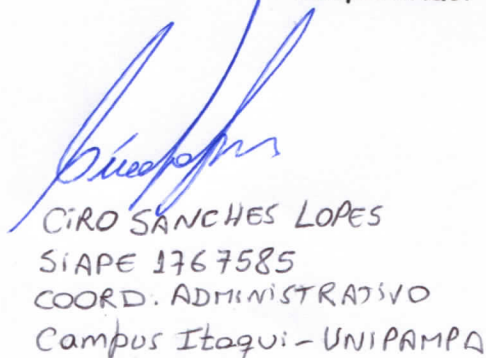 CIRO SANCHES LOPES
SIAPE 1767585
COORD. ADMINISTRATIVO
Campus Itaqui - UNIPAMPA